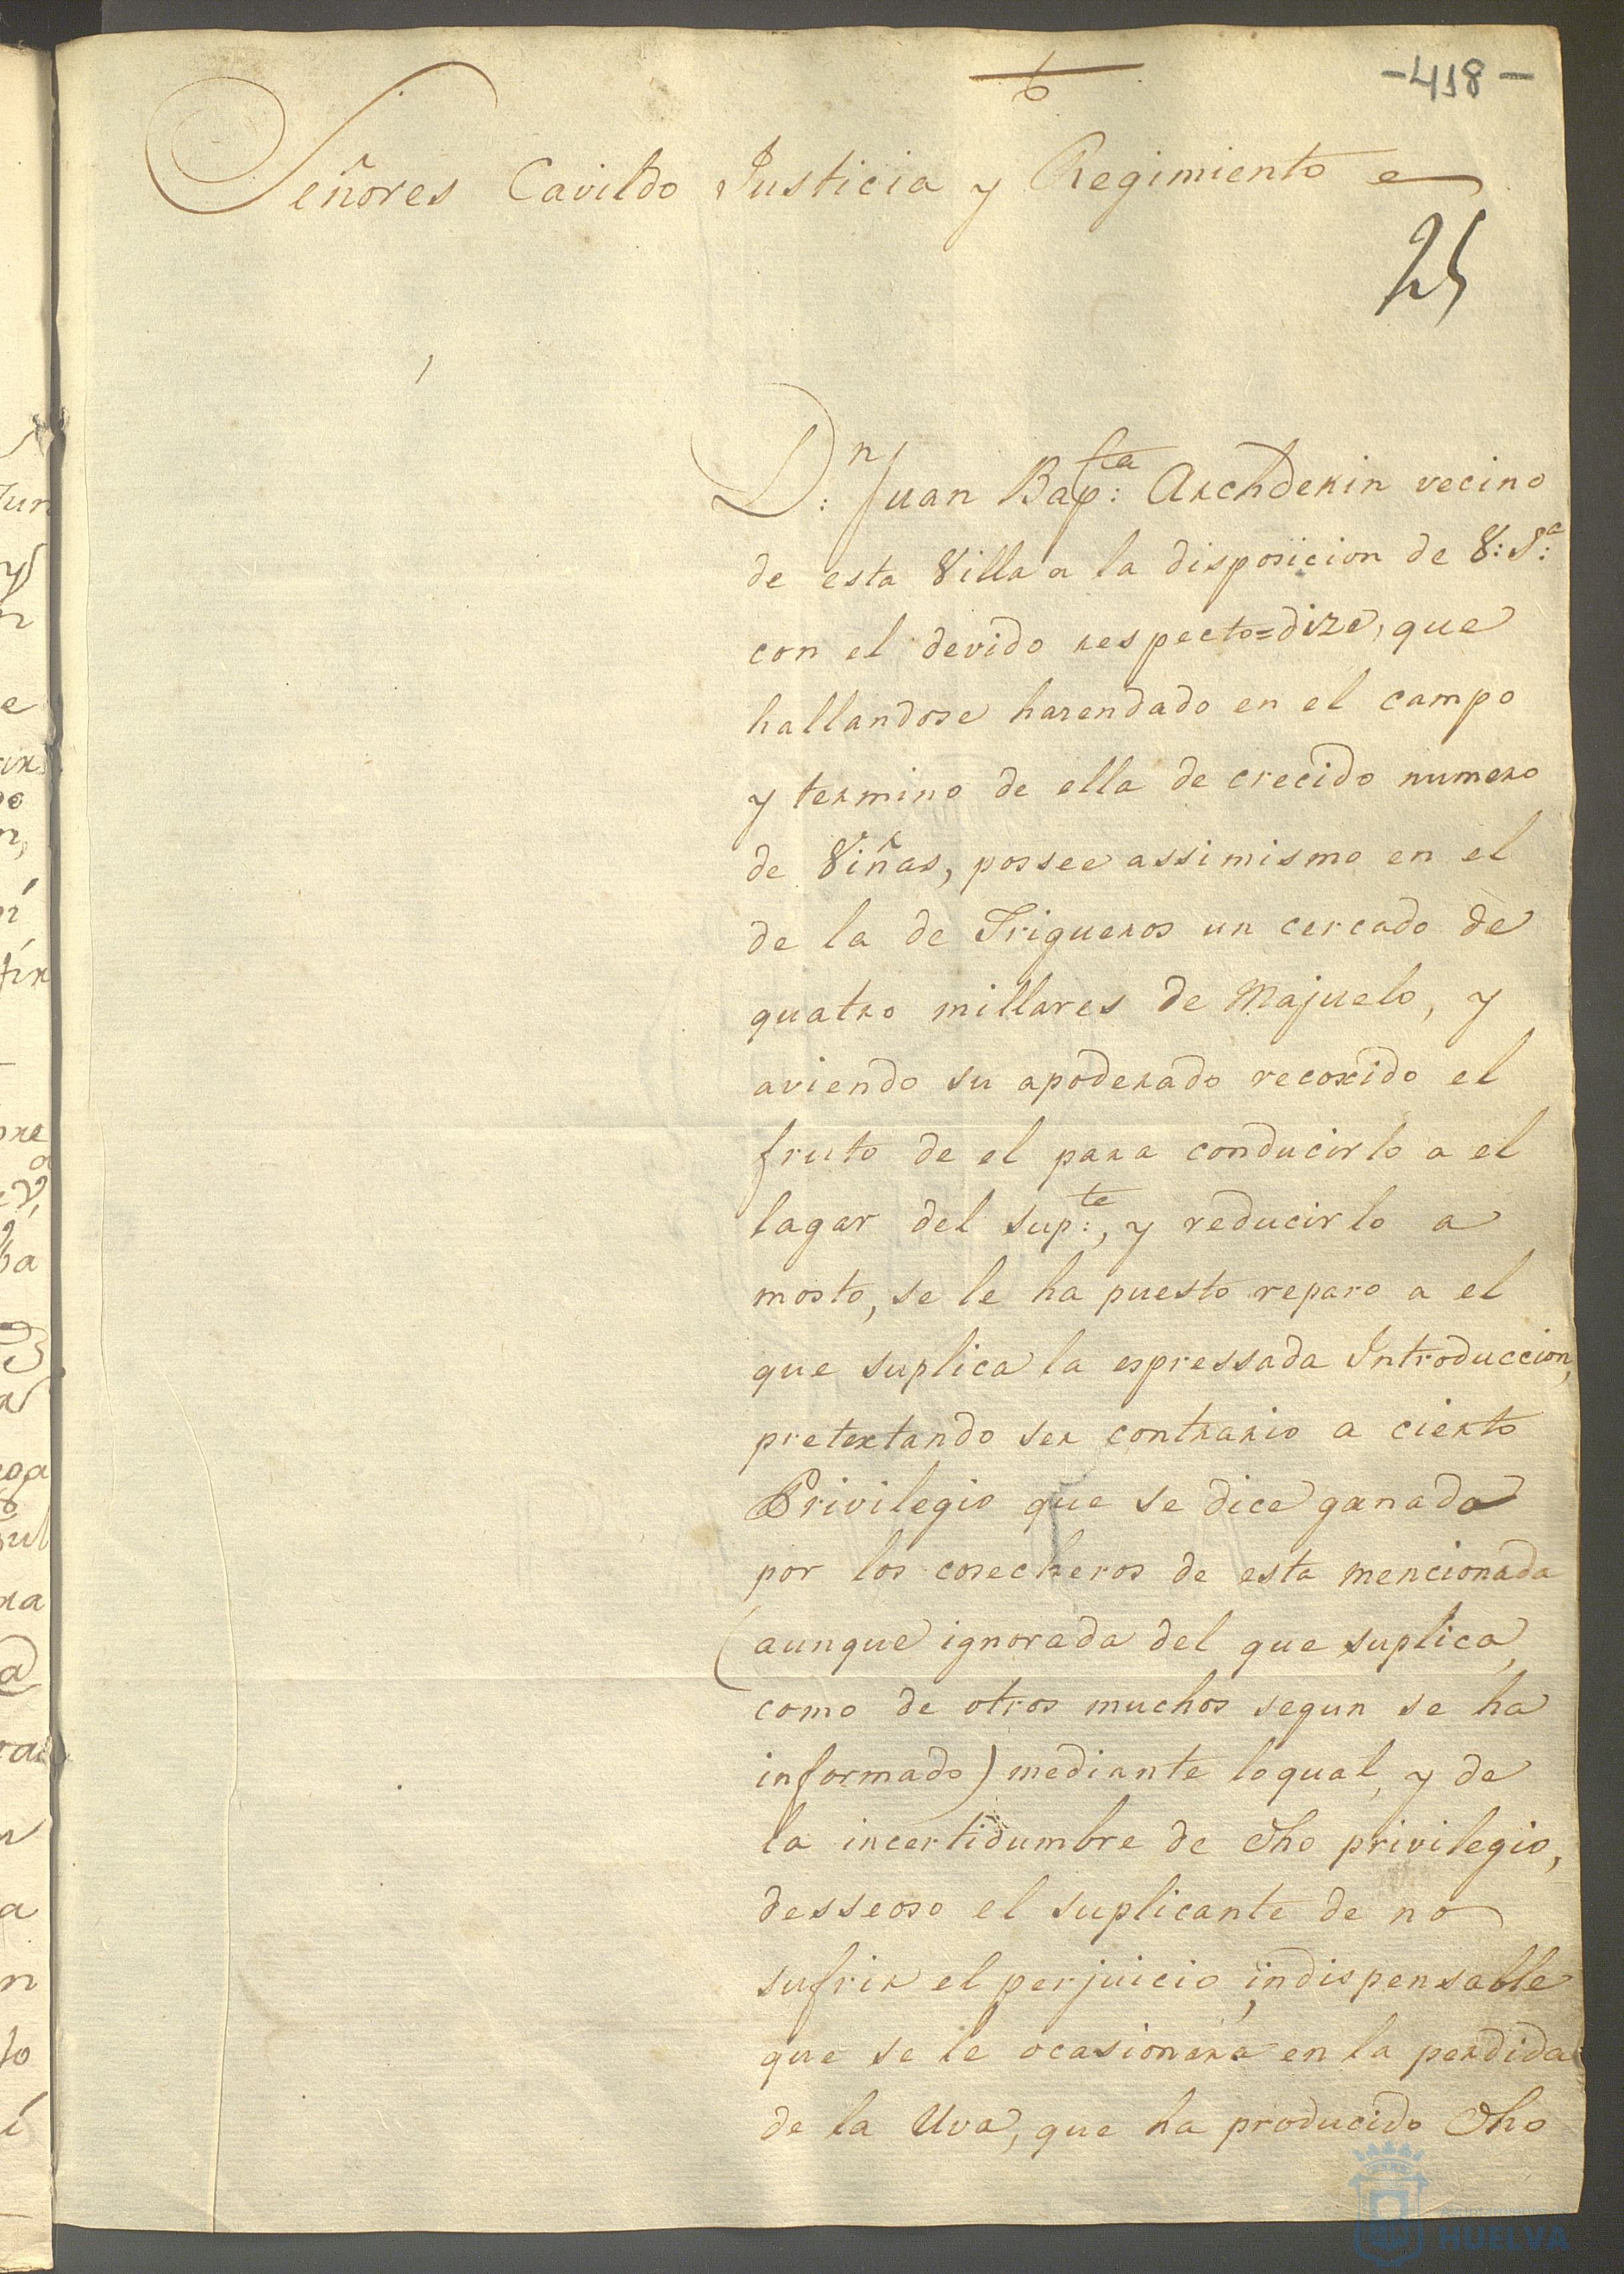 -418-
Señores Cavildo Justicia y Regimiento
25
D.n Juan Bap.ta Archdekin vecino
de esta Villa a la disposicion de V.S.a
con el devido respecto=dize, que
hallandose harendado en el campo
y termino de ella de crecido numero
de Viñas, possee assimismo en el
de la de Trigueros un cercado de
quatro millares de Majuelo, y
aviendo su apoderado recoxido el
fruto de el para conducirlo a el
lagar del sup.te, y reducirlo a
mosto, se le ha puesto reparo a el
que suplica la espressada Introduccion,
pretextando ser contrario a cierto
Privilegio que se dice ganado
por los cosecheros de esta mencionada
(aunque ignorada del que suplica,
como de otros muchos segun se ha
informado) mediante loqual, y de
la incertidumbre de dho privilegio,
desseoso el suplicante de no
sufrir el perjuicio indispensable
que se le ocasionara en la perdida
de la Uva, que ha producido dho
HUELVA